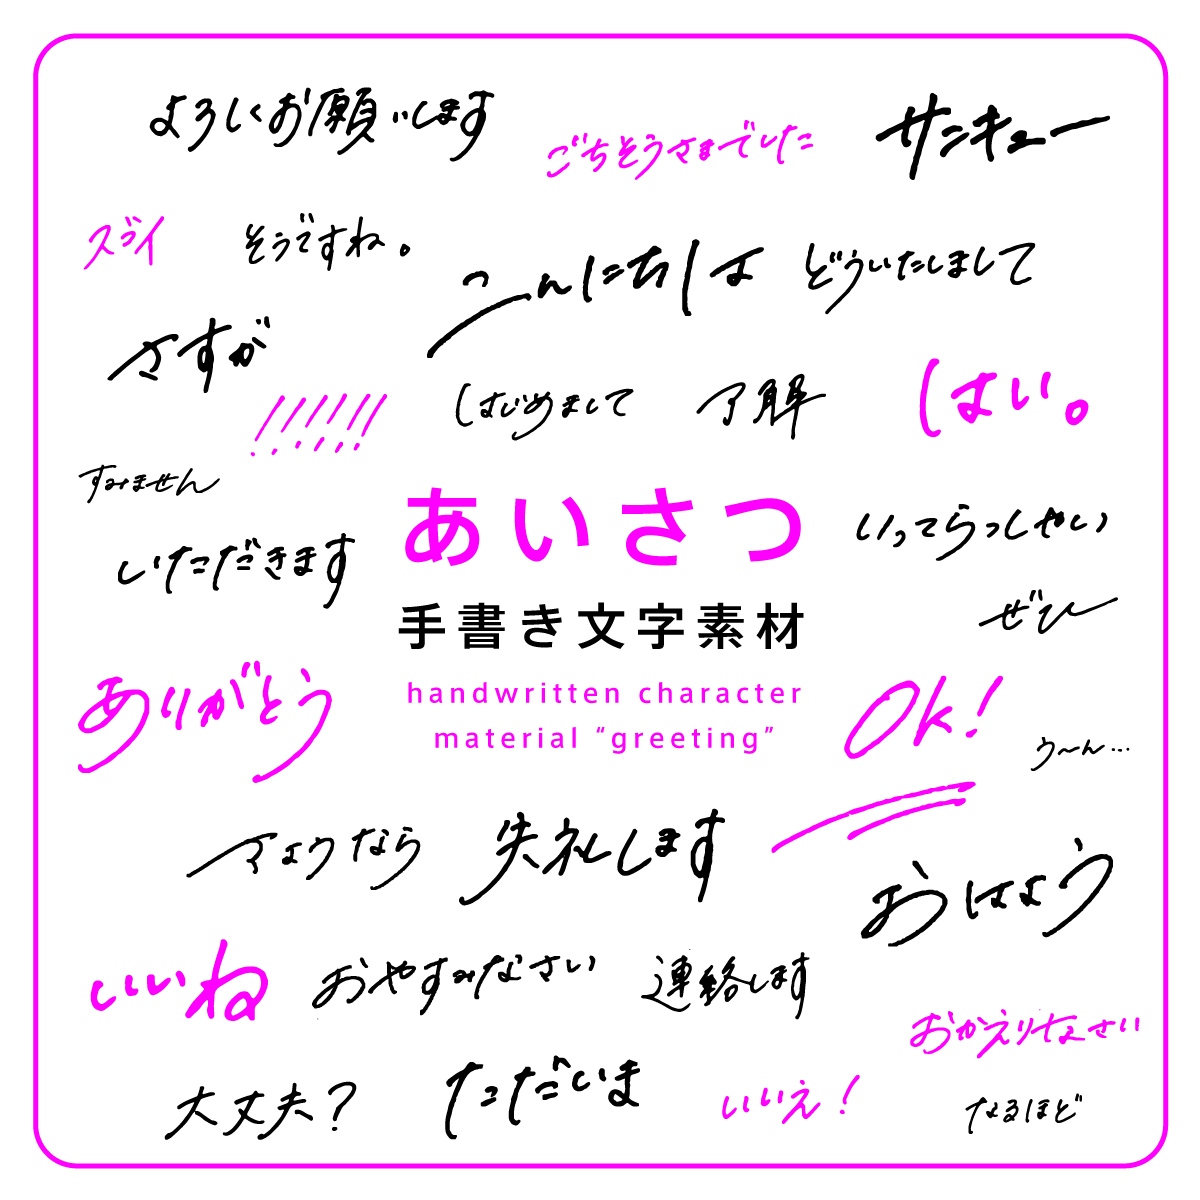 よろしくお願いします
ごちそうさまでした
サンキュー
スゴイ
そうですね。
こんにちは
どういたしまして
さすが
!!!!!!
はじめまして
了解
はい。
すみません
あいさつ
いってらっしゃい
いただきます
手書き文字素材
ぜひ
ありがとう
handwritten character
material “greeting”
OK!
う〜ん…
さようなら
失礼します
おはよう
いいね
おやすみなさい
連絡します
おかえりなさい
大丈夫?
ただいま
いいえ!
なるほど